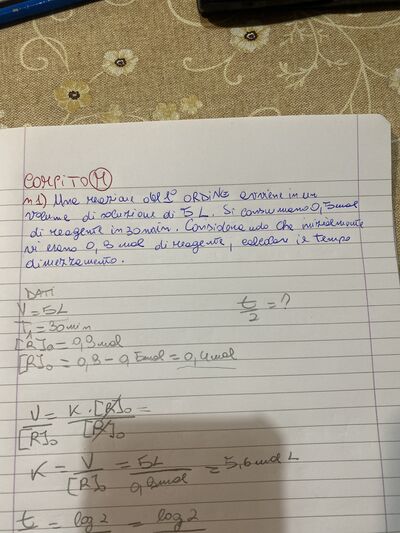 COMPITO M
n1) Una reazione del 1° ORDINE avviene in un
volume di soluzione di 5L. Si consumano 0,5 mol
di reagente in 30min. Considerando che inizialmente
vi erano 0,9 mol di reagente, calcolare il tempo
dimezzamento.
DATI
V=5L
t/2 = ?
T₁=30min
[R]₀=0,9mol
[R]₀ = 0,9-0,5mol = 0,4mol
V/[R]₀ = K·[R]₀/[R]₀ =
K = V/[R]₀ = 5L/0,9mol = 5,6mol L
t = log2 = log2